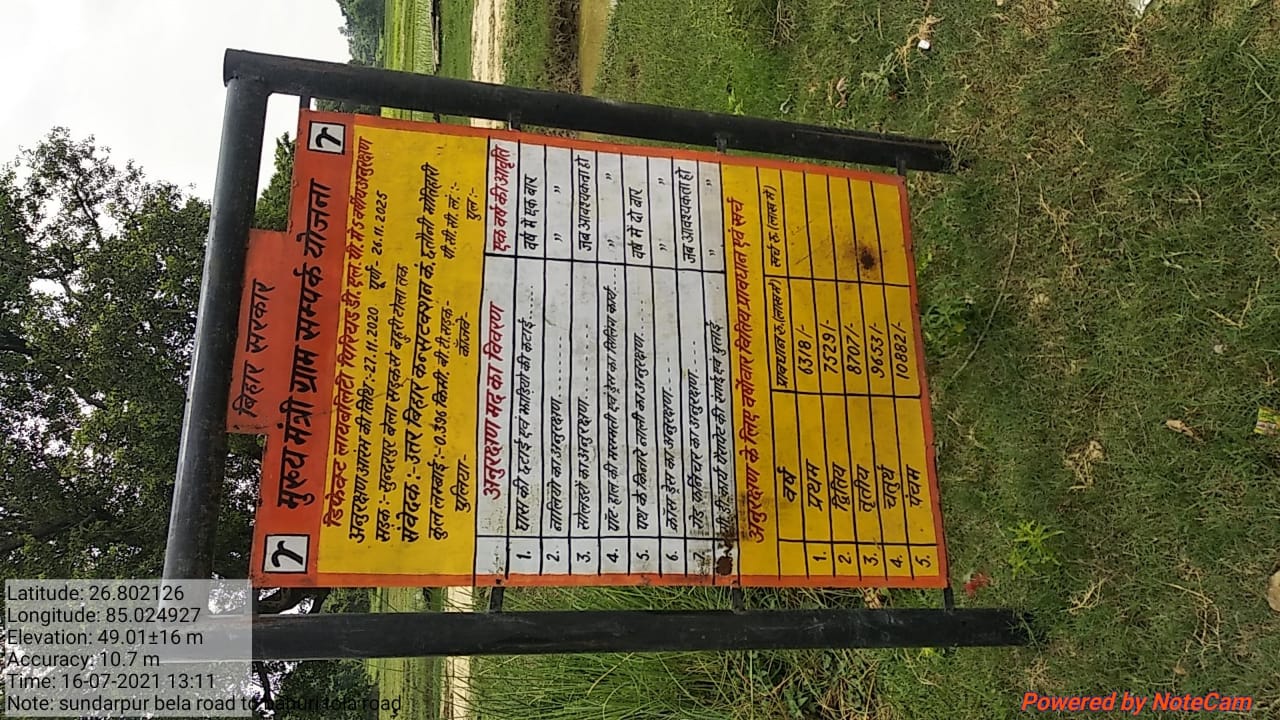 बिहार सरकार
मुख्य मंत्री ग्राम सम्पर्क योजना
डिफेक्ट लायबलिटी पिरियड डी. एल. पी. में 5 वर्षीय अनुरक्षण
अनुरक्षण आरंभ की तिथि:-27.11.2020 पूर्ण- 26.11.2025
सड़क:- सुन्दरपुर बेला सड़क से बहुरी टोला तक
संवेदक:- उत्तर बिहार कंन्सटक्शन कं.
कुल लम्बाई:-0.396 किमी. बी.टी.सड़क:- पी.सी.सी.लं.:-
पुलिया:- कॉजवे:- पुल:-
अनुरक्षण मद का विवरण एक वर्ष की आवृति
1. घास की छटाई एवं झाड़ियो की कटाई...... वर्ष में एक बार
2. नालियो का अनुरक्षण ,, ,,
3. सोलडरो का अनुरक्षण........ जब आवश्यकता हो
4. पॉट होल की मरम्मत ,, ,,
5. पथ के किनारे नाली का अनुरक्षण..... वर्ष में दो बार
6. क्रॉस ड्रेन्स का अनुरक्षण...... ,, ,,
7. रोड फर्निचर का अनुरक्षण....... जब आवश्यकता हो
सी.डी.कार्य पैरापेट की रंगाई एवं पुताई ,,
अनुरक्षण के लिए वर्षोवार वितिय प्रावधान एवं खर्च
वर्ष प्रावधान रु.(लाख में) खर्च रु.(लाख में)
1. प्रथम 6318/-
2. द्वितिय 7529/-
3. तृतीय 8707/-
4. चतुर्थ 9653/-
5. पंचम 10882/-
Latitude: 26.802126
Longitude: 85.024927
Elevation: 49.01±16 m
Accuracy: 10.7 m
Time: 16-07-2021 13:11
Note: sundarpur bela road to bahuri tola road
Powered by NoteCam